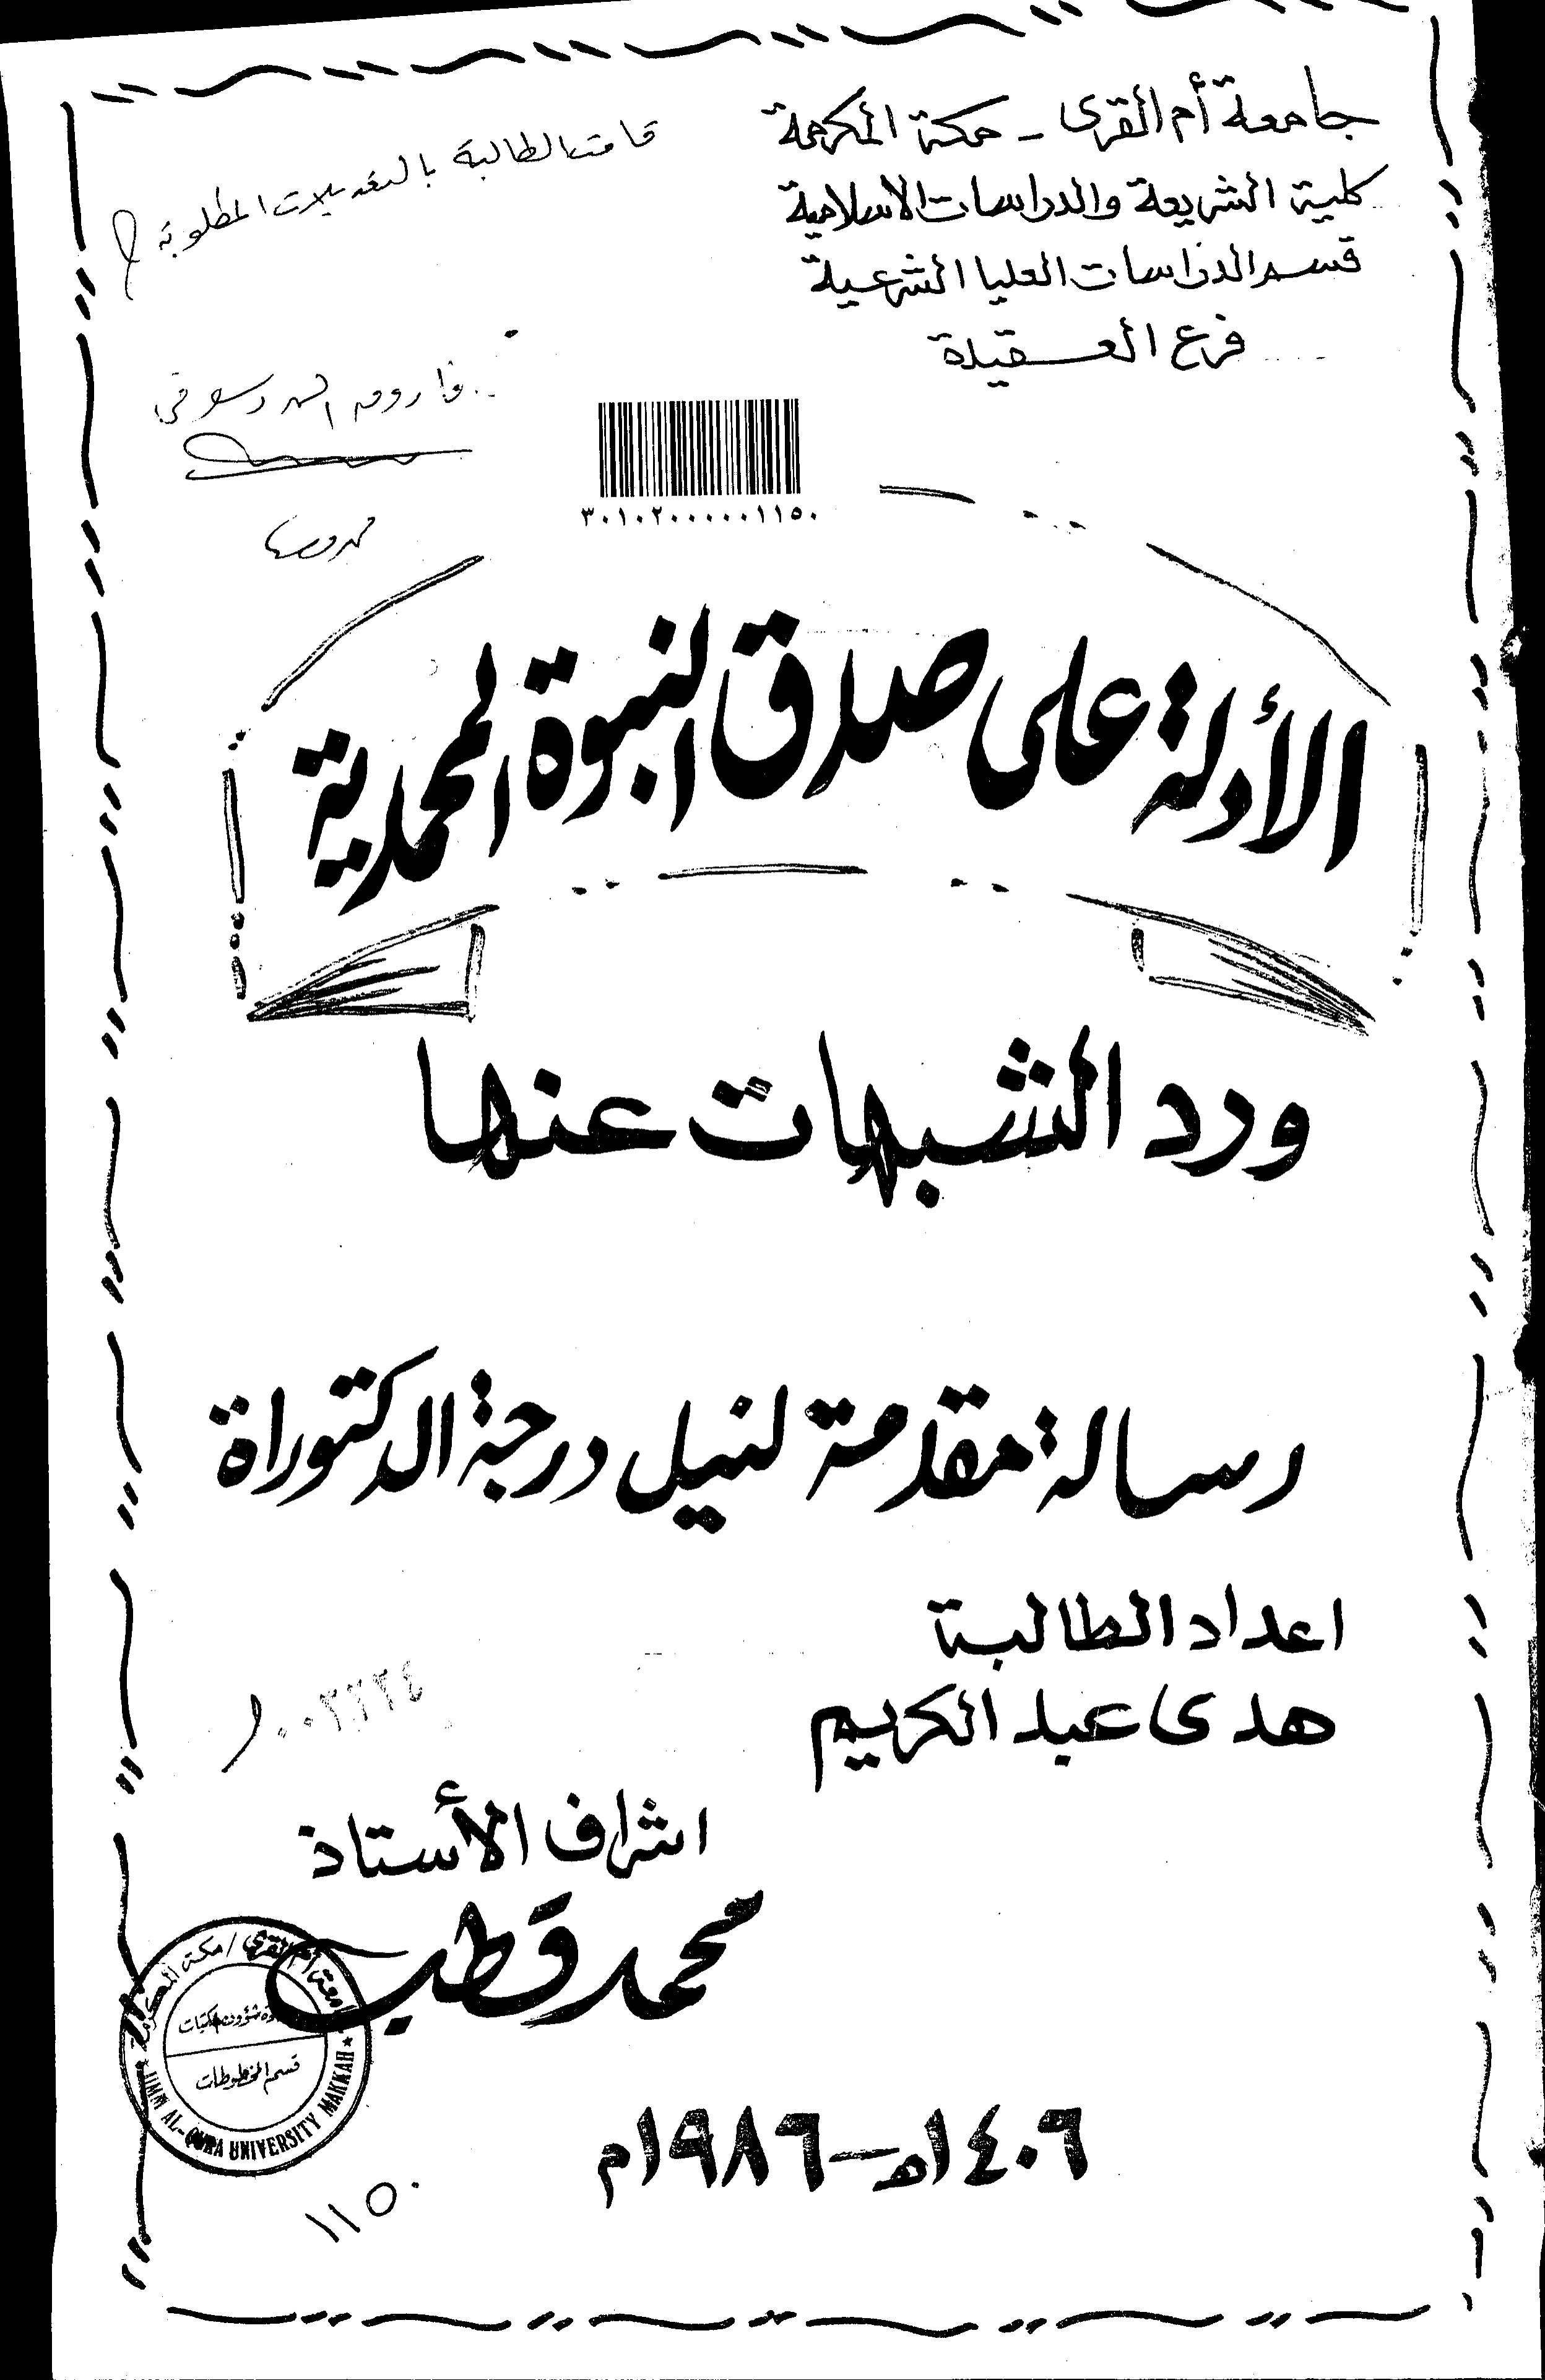 جامعة أم القرى - مكة المكرمة
كلية الشريعة والدراسات الاسلامية
قسم الدراسات العليا الشرعية
فرع العقيدة
قامت الطالبة بالتعديلات المطلوبة
فاروق الدسوقي
٣٠١٠٢٠٠٠٠٠١١٥٠
الأدلة على صدق النبوة المحمدية
ورد الشبهات عنها
رسالة مقدمة لنيل درجة الدكتوراة
اعداد الطالبة
هدى عبد الكريم
اشراف الأستاذ
محمد قطب
جامعة أم القرى / مكة المكرمة
شؤون المكتبات
قسم المخطوطات
UMM AL-QURA UNIVERSITY MAKKAH
١٤٠٦ه - ١٩٨٦م
١١٥٠